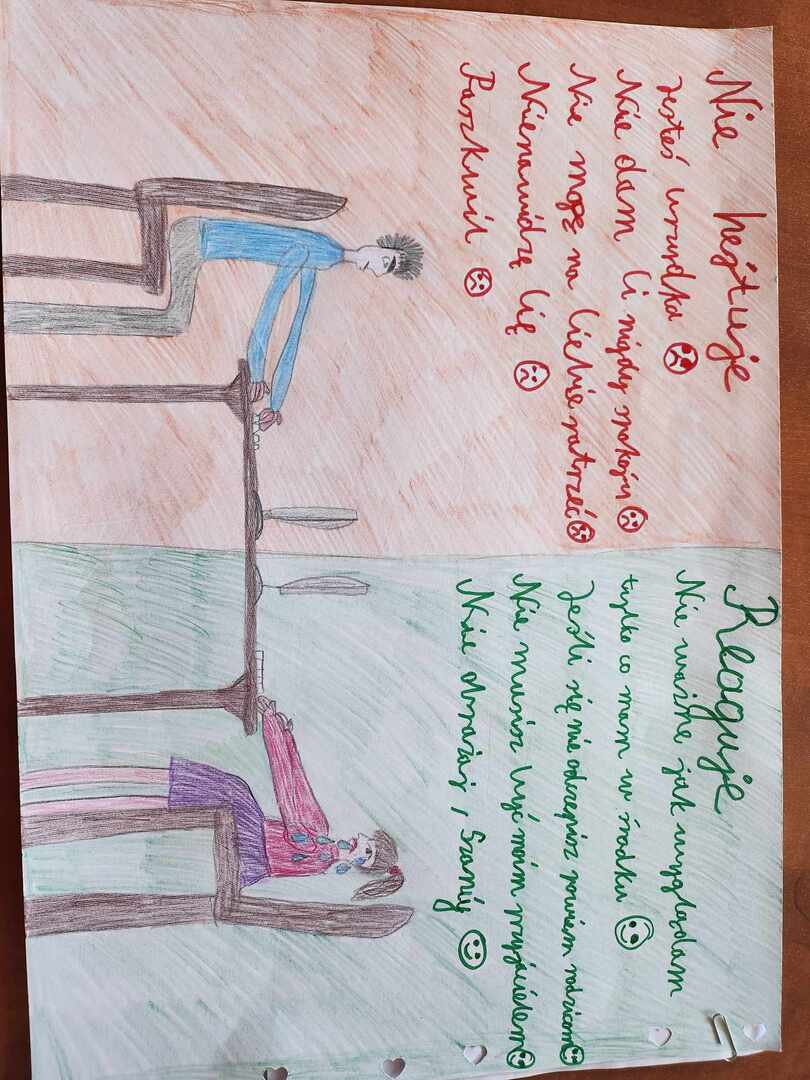 Nie hejtuje
Jesteś brzydka
Nie dam Ci nigdy spokoju
Nie mogę na Ciebie patrzeć
Nienawidzę Cię
Paszkwil
Reaguje
Nie ważne jak wyglądam
tylko co mam w środku
Jeśli się nie odczepisz powiem rodzicom
Nie musisz być moim przyjacielem
Nie obrażaj, Szanuj